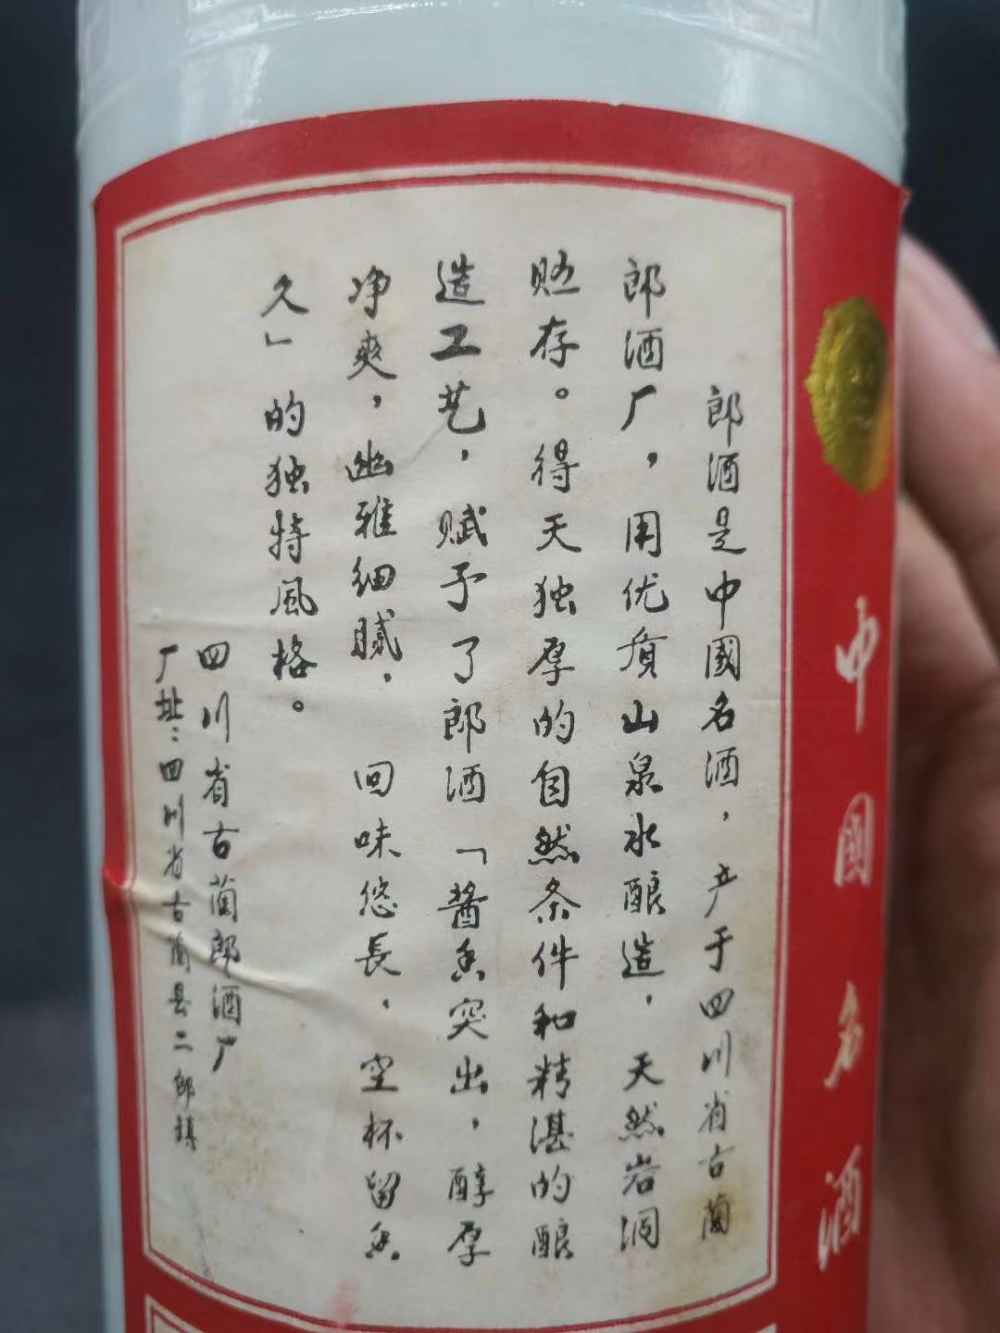 郎酒是中國名酒，产于四川省古蔺
郎酒厂，用优质山泉水酿造，天然岩洞
贮存。得天独厚的自然条件和精湛的酿
造工艺，赋予了郎酒「酱香突出，醇厚
净爽，幽雅细腻，回味悠長，空杯留香
久」的独特風格。
四川省古蔺郎酒厂
厂址：四川省古蔺县二郎镇
中國名酒